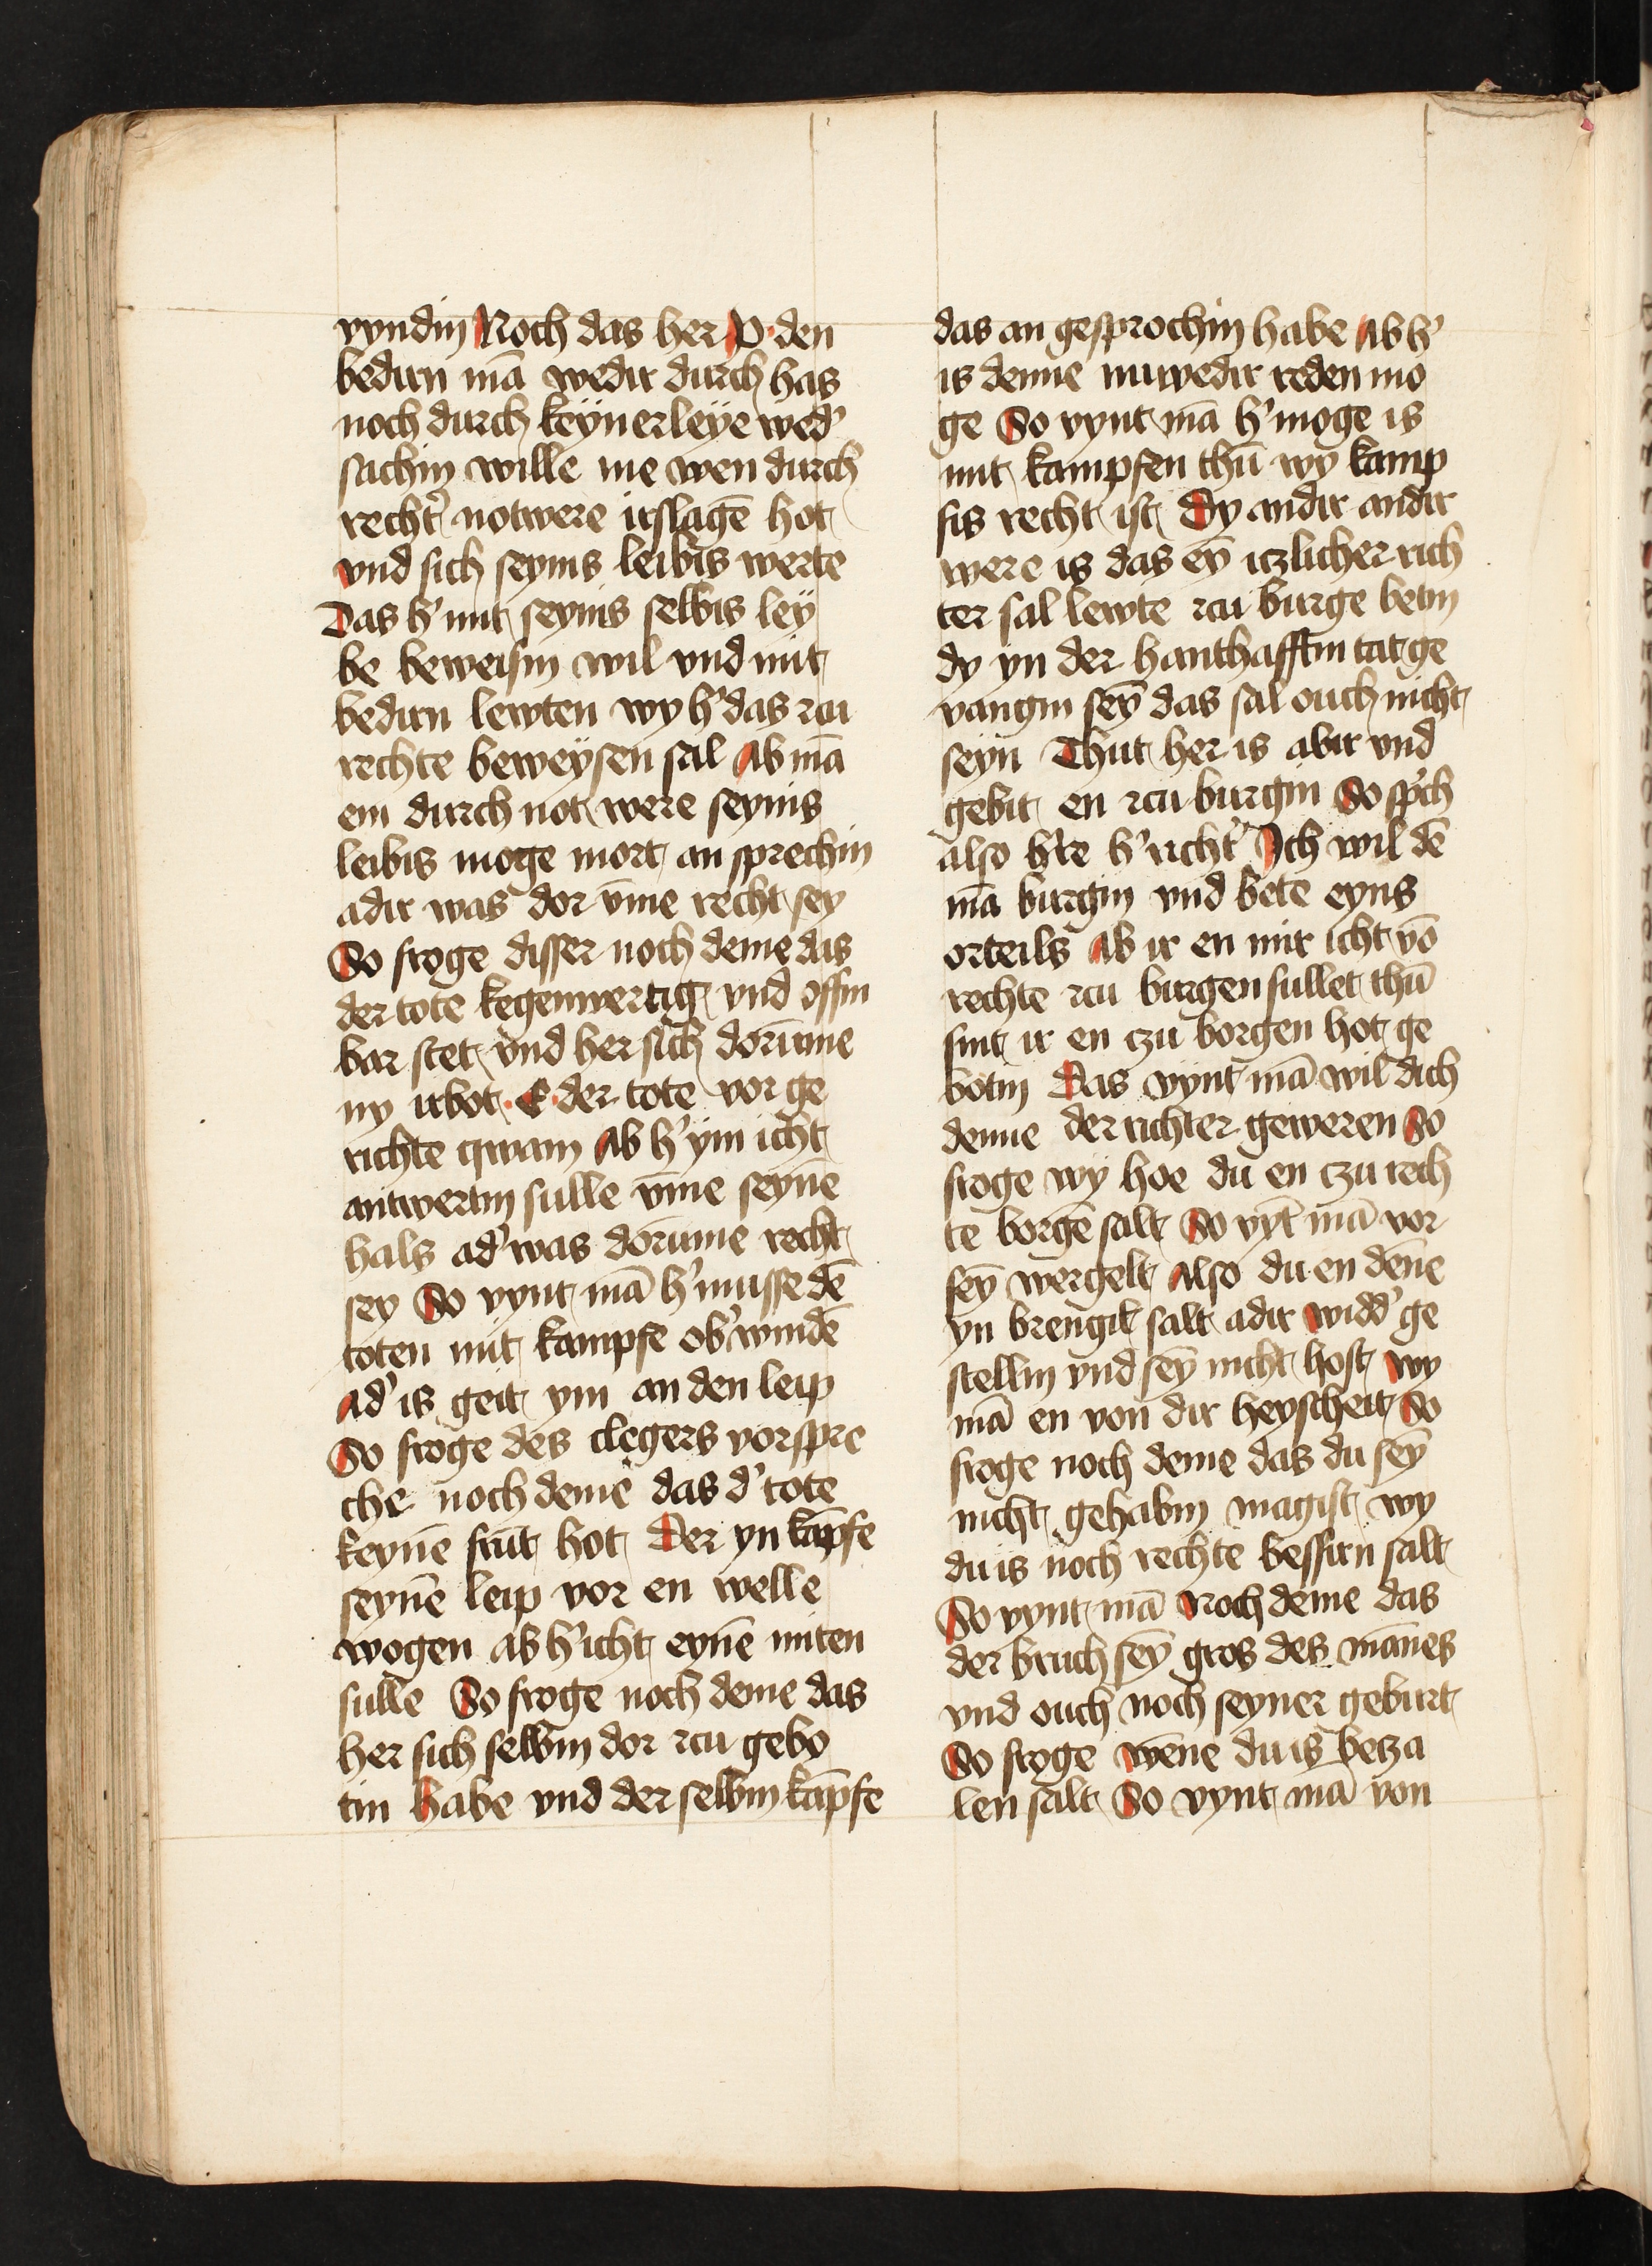 vyndin Noch das her P den
bedirn mā wedir durch has
noch durch keÿnerleÿe wed'
sachin wille me wen durch
recht' notwere irslagē hot
vnd sich seynis leibis werte
Das h' mit seynis selbis leÿ
be beweisin wil vnd mit
bedirn lewten wy h' das zcu
rechte beweÿsen sal Ab mā
em durch not were seynis
leibis moge mort an sprechin
adir was dor vm̄e recht sey
So froge disser noch deme das
der tote kegenwertig vnd offin
bar stet vnd her sich dorum̄e
ny irbot E der tote vor ge
richte qwam Ab h' ym icht
antwertin sulle vm̄e seynē
hals ad' was dorum̄e recht
sey So vynt mā h' musse dē
toten mit kampfe ob'windē
ad' is geit ym an den leip
So froge des clegers vorspre
che noch deme das d' tote
keynē frūt hot Der yn kāpfe
seynē leip vor en welle
wogen ab h' icht eynē miten
sulle So froge noch deme das
her sich selbin dor zcu gebo
tin habe vnd der selbin kāpfe
das an gesprochin habe Ab h'
is denne mitwedir reden mo
ge So vynt mā h' moge is
mit kampfen thū wy kamp
fis recht ist Dy andir andir
were is das eȳ iczlicher rich
ter sal lewte zcu burge betin
dy yn der hanthafftin tat ge
vangin seȳ das sal ouch nicht
seyn Thut her is abir vnd
gebit en zcu burgin So sp'ch
also h're h' richt' Ich wil dē
mā burgin vnd bete eyns
orteils Ab ir en mir icht vō
rechte zcu burgen sullet thū
sint ir en czu borgen hot ge
botin Das vynt mā wil dich
denne der richter geweren So
froge wÿ hoe du en czu rech
te borgē salt So vȳt mā vor
seȳ wergelt Also du en dēne
yn brengit salt adir widd' ge
stellin vnd seȳ nicht host wy
mā en von dir heyscheit So
froge noch deme das du seȳ
nicht gehabin magist wy
du is noch rechte bessirn salt
So vynt mā Noch deme das
der bruch seȳ gros des mānes
vnd ouch noch seyner geburt
So froge wēne du is beza
len salt So vynt mā von